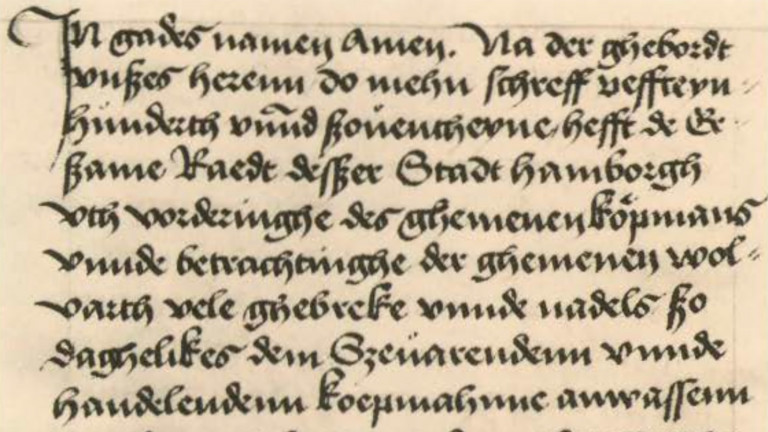 In gades namen Amen. Na der ghebordt
vnßes herenn do mehn schreff veffteyn
hunderth vnnd ßouentheyne hefft de Er
ßame Raedt desßer Stadt hamborgh
vth vorderinghe des ghemenen kopmans
vnnde betrachtinghe der ghemenen wol-
varth vele ghebreke vnnde nadels ßo
daghelikes dem Szeuarendenn vnnde
handelendenn koepmahnne anwassenn